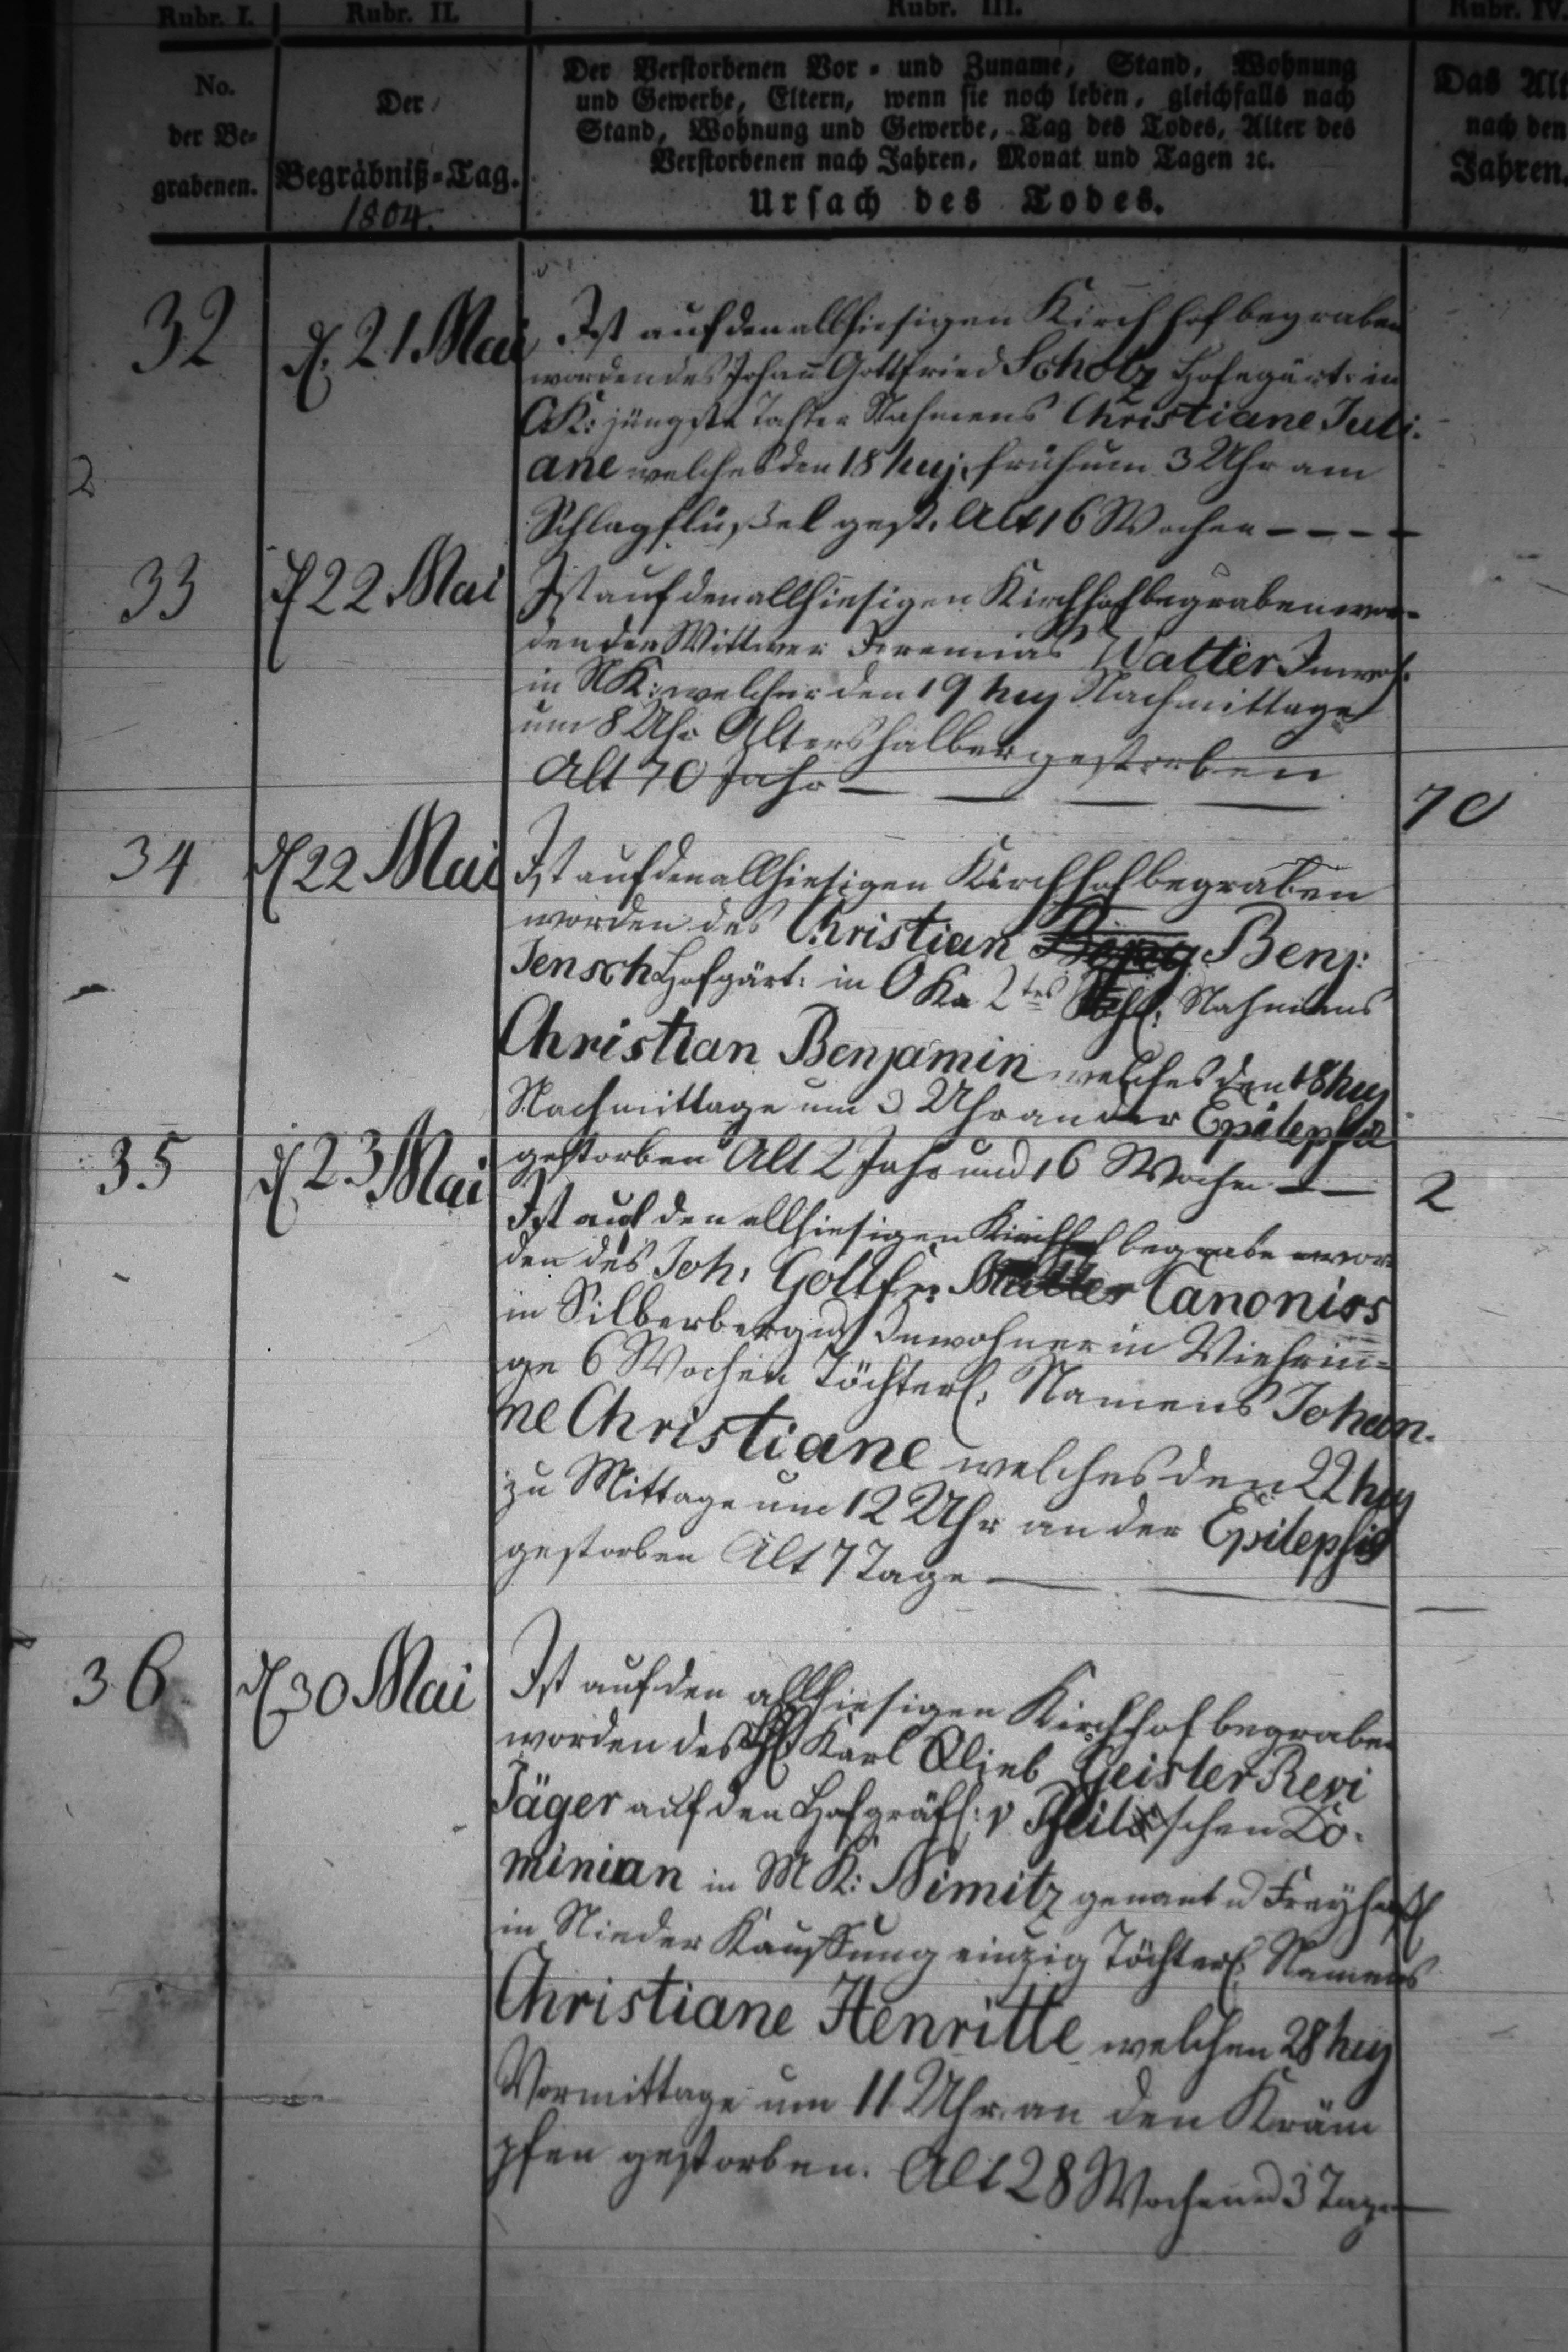 Rubr. I. Rubr. II. Rubr. III. Rubr. IV.
No.
der Be-
grabenen.
Der
Begräbniß-Tag.
1804.
Der Verstorbenen Vor- und Zuname, Stand, Wohnung
und Gewerbe, Eltern, wenn sie noch leben, gleichfalls nach
Stand, Wohnung und Gewerbe, Tag des Todes, Alter des
Verstorbenen nach Jahren, Monat und Tagen ꝛc.
Ursach des Todes.
Das Alt
nach den
Jahren.
32 d. 21. Mai Ist auf den allhiesigen Kirchhof begraben
worden des Johañ Gottfried Scholz Hofegärt: in
OK: jüngste Tochter Nahmens Christiane Juli:
ane welches den 18 huj. früh um 3 Uhr am
2
Schlagflußel gest. Alt 16 Wochen - - - -
33 d 22 Mai Ist auf den allhiesigen Kirchhof begraben wor-
den der Wittwer Jeremias Walter Inwoh:
in NK: welcher den 19 huj Nachmittage
um 8 Uhr Altershalber gestorben
Alt 70 Jahr
70
34 d 22 Mai Ist auf den allhiesigen Kirchhof begraben
worden des Christian Benj:
Jensch Hofgärt: in OKa 2tes Nahmens
Christian Benjamin welches den 18 huj
Nachmittage um 3 Uhr an der Epilepsie
gestorben Alt 2 Jahr und 16 Wochen
2
35 d 23 Mai Ist auf den allhiesigen Kirchhof begrabe wor-
den des Joh: Gottfr: Müller Canonirs
in Silberberg u Inwohner in Viehrin-
ge 6 Wochen Töchterl: Namens Johan-
ne Christiane welches den 22 huj
zu Mittage um 12 Uhr an der Epilepsie
gestorben Alt 7 Tage
36 d 30 Mai Ist auf den allhiesigen Kirchhof begraben
worden des H Karl Glieb Geisler Revi
Jäger auf den Hofgräfl: v Pfeilschen Do-
minian in MK: Nimitz genant u
in Nieder Kauffung einzig Töchterl: Namens
Christiane Henritte welchen 28 huj
Vormittage um 11 Uhr an den Kräm
pfen gestorben. Alt 28 Wochen u 3 Tage